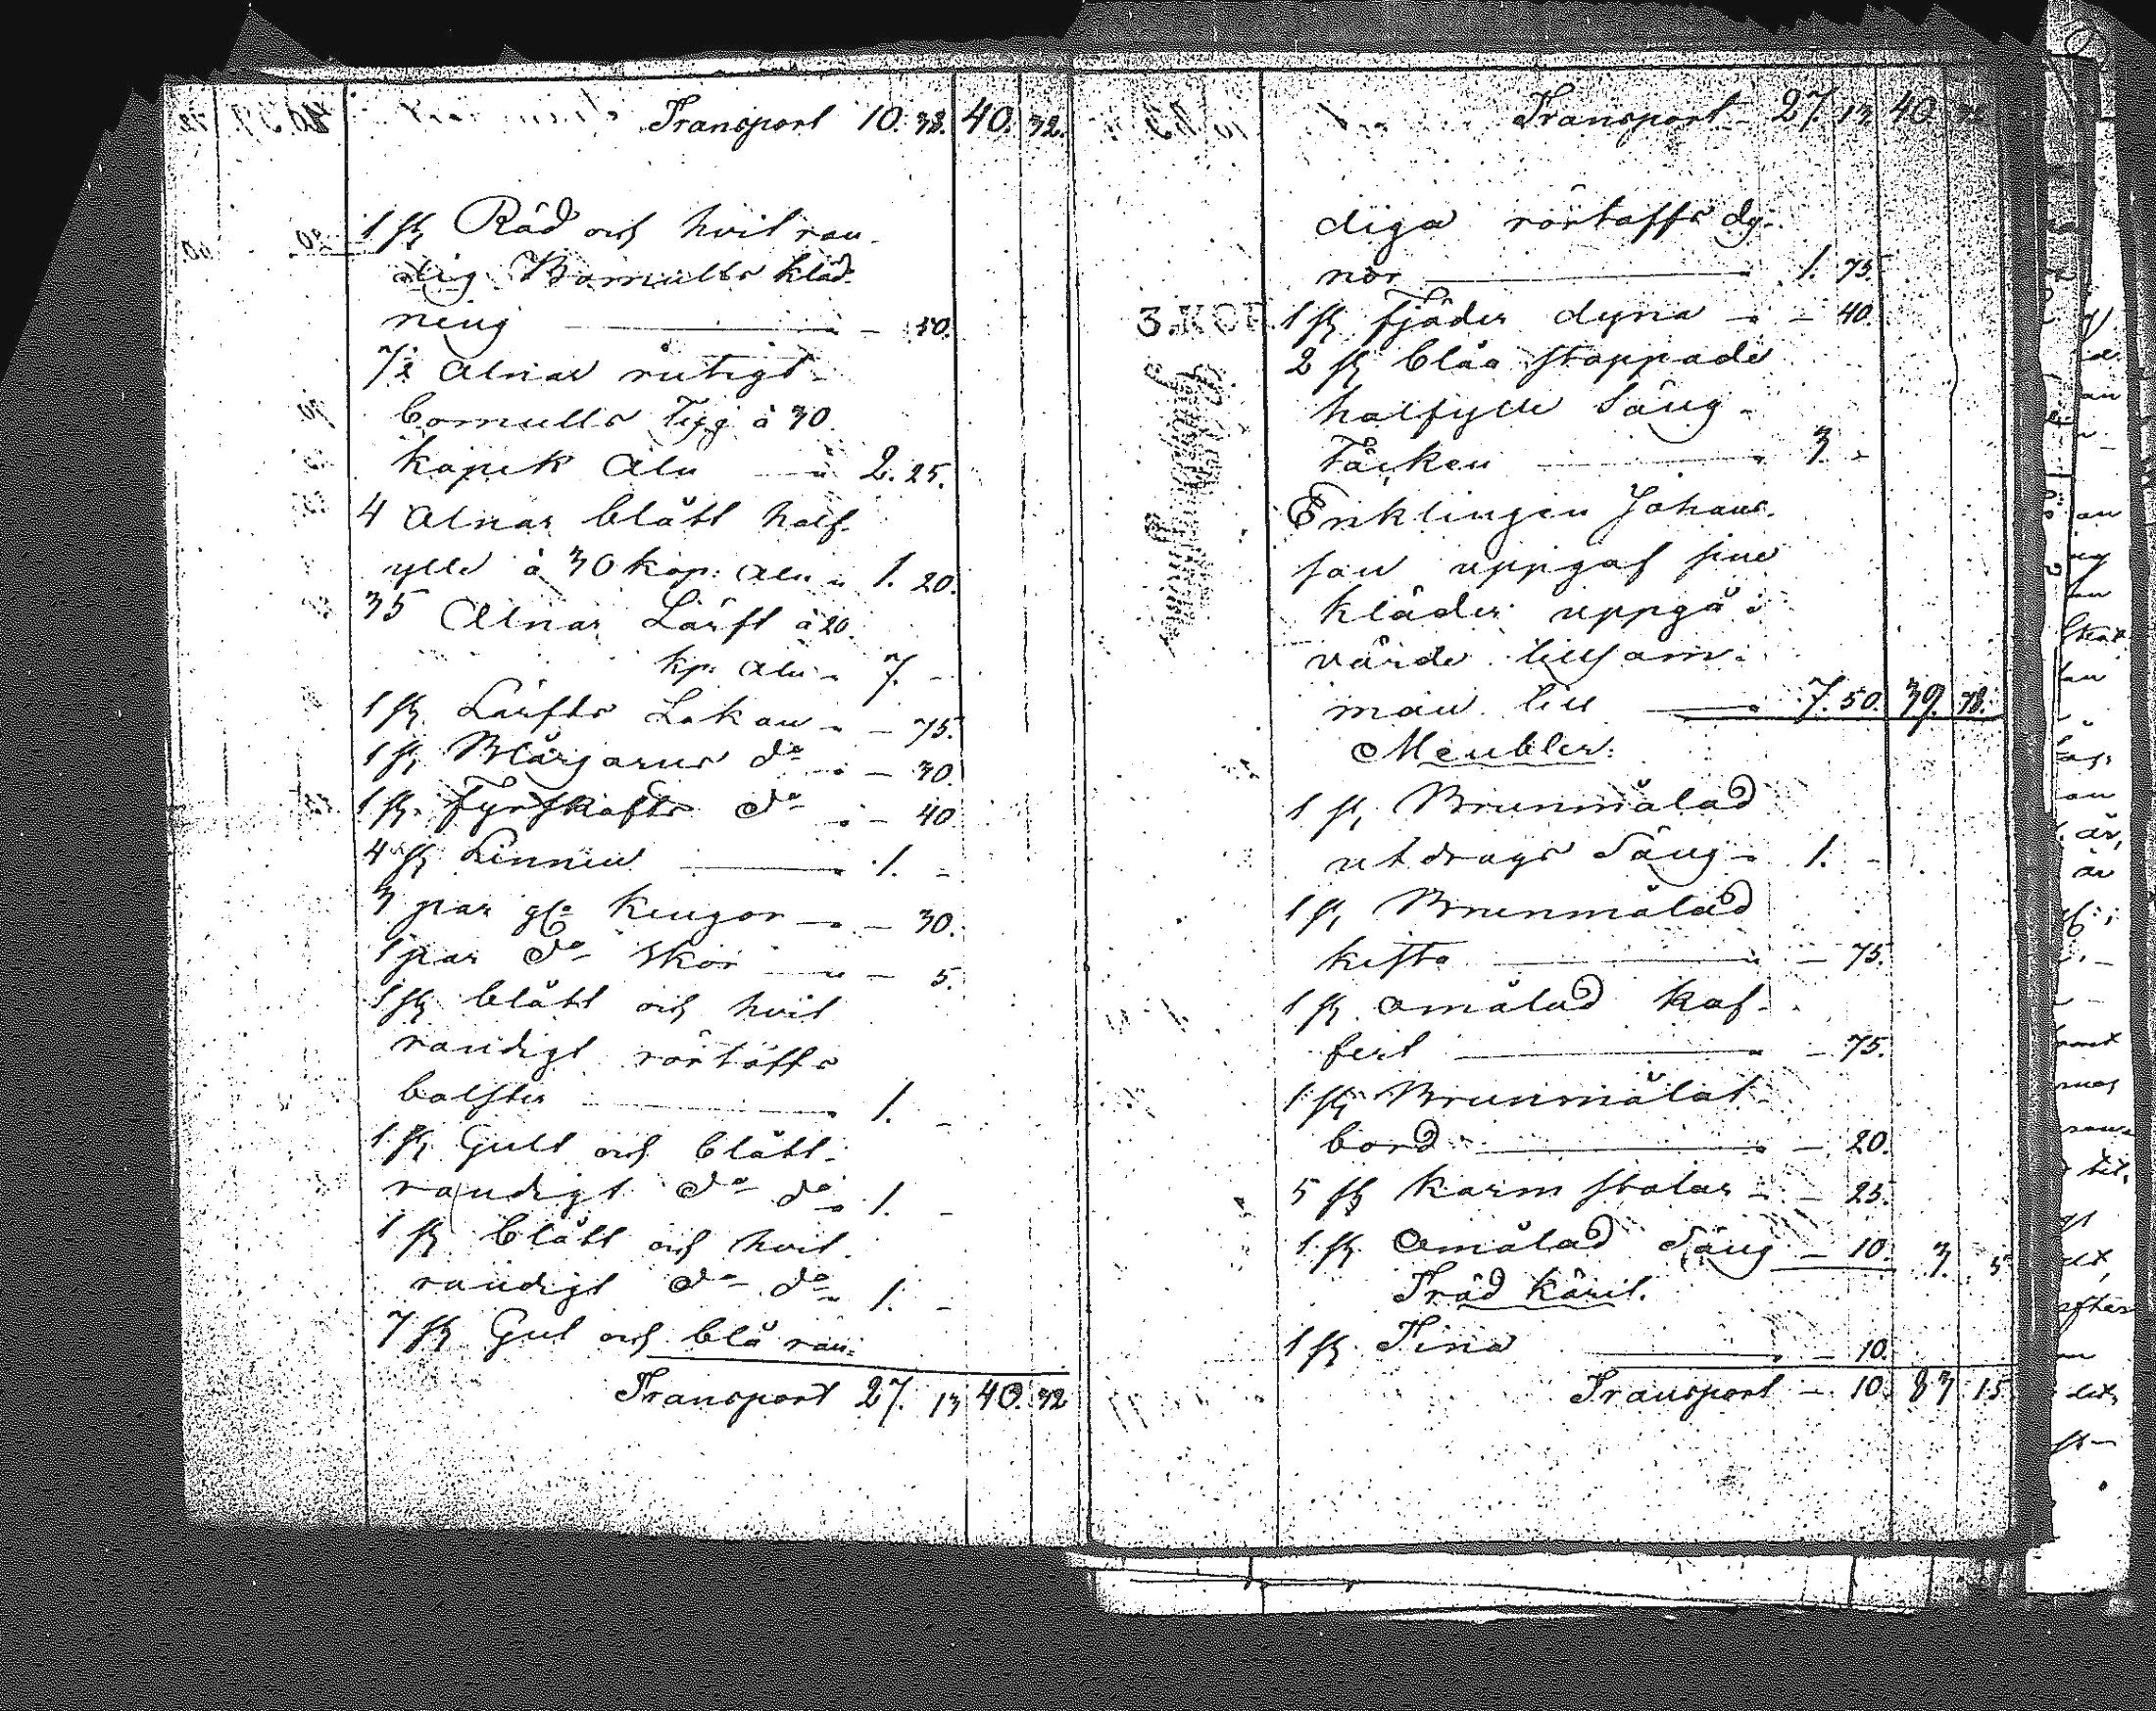 Transport 10. 38. 40. 32.
1 st Röd och hvit ran-
dig Bomulls kläd-
ning - 50.
7½ Alnar rutigt
bomulls Tyg à 30
kopek Aln 2. 25.
4 Alnar blått half-
ylle à 30 kop: Aln 1. 20.
35 Alnar Lärft à 20
kp: Aln 7. -
1 st Lärfts Lakan - 75.
1 st Blårgarns do - 30.
1 st Fyrskafts do - 40
4 st Linnen 1. -
3 par gla Kengor - 30.
1 par do Skor - 5.
1 st blått och hvit
randigt rörtöffs
bolster 1. -
1 st Gult och blått
randigt do do 1. -
1 st blått och hvit
randigt do do 1. -
7 st Gul och blå ran-
Transport 27. 13 40. 32
Transport 27. 13. 40. 32
diga rörtöffs dy-
nor 1. 75.
3. KOP.
1 st Fjäder dyna - 40.
2 st blåa stoppade
halfylle Säng-
Täcken 3. -
Enklingen Johans-
son uppgaf sine
kläder uppgå i
värde tillsam-
man till 7. 50. 39. 78.
Meubler.
1 st Brunmålad
utdrags Säng 1. -
1 st Brunmålad
kista - 75.
1 st omålad kof-
fert - 75.
1 st Brunmålat
bord - 20.
5 st karm stolar - 25.
1 st Omålad Säng - 10. 3. 5
Träd käril.
1 st Tina - 10.
Transport - 10. 83 15